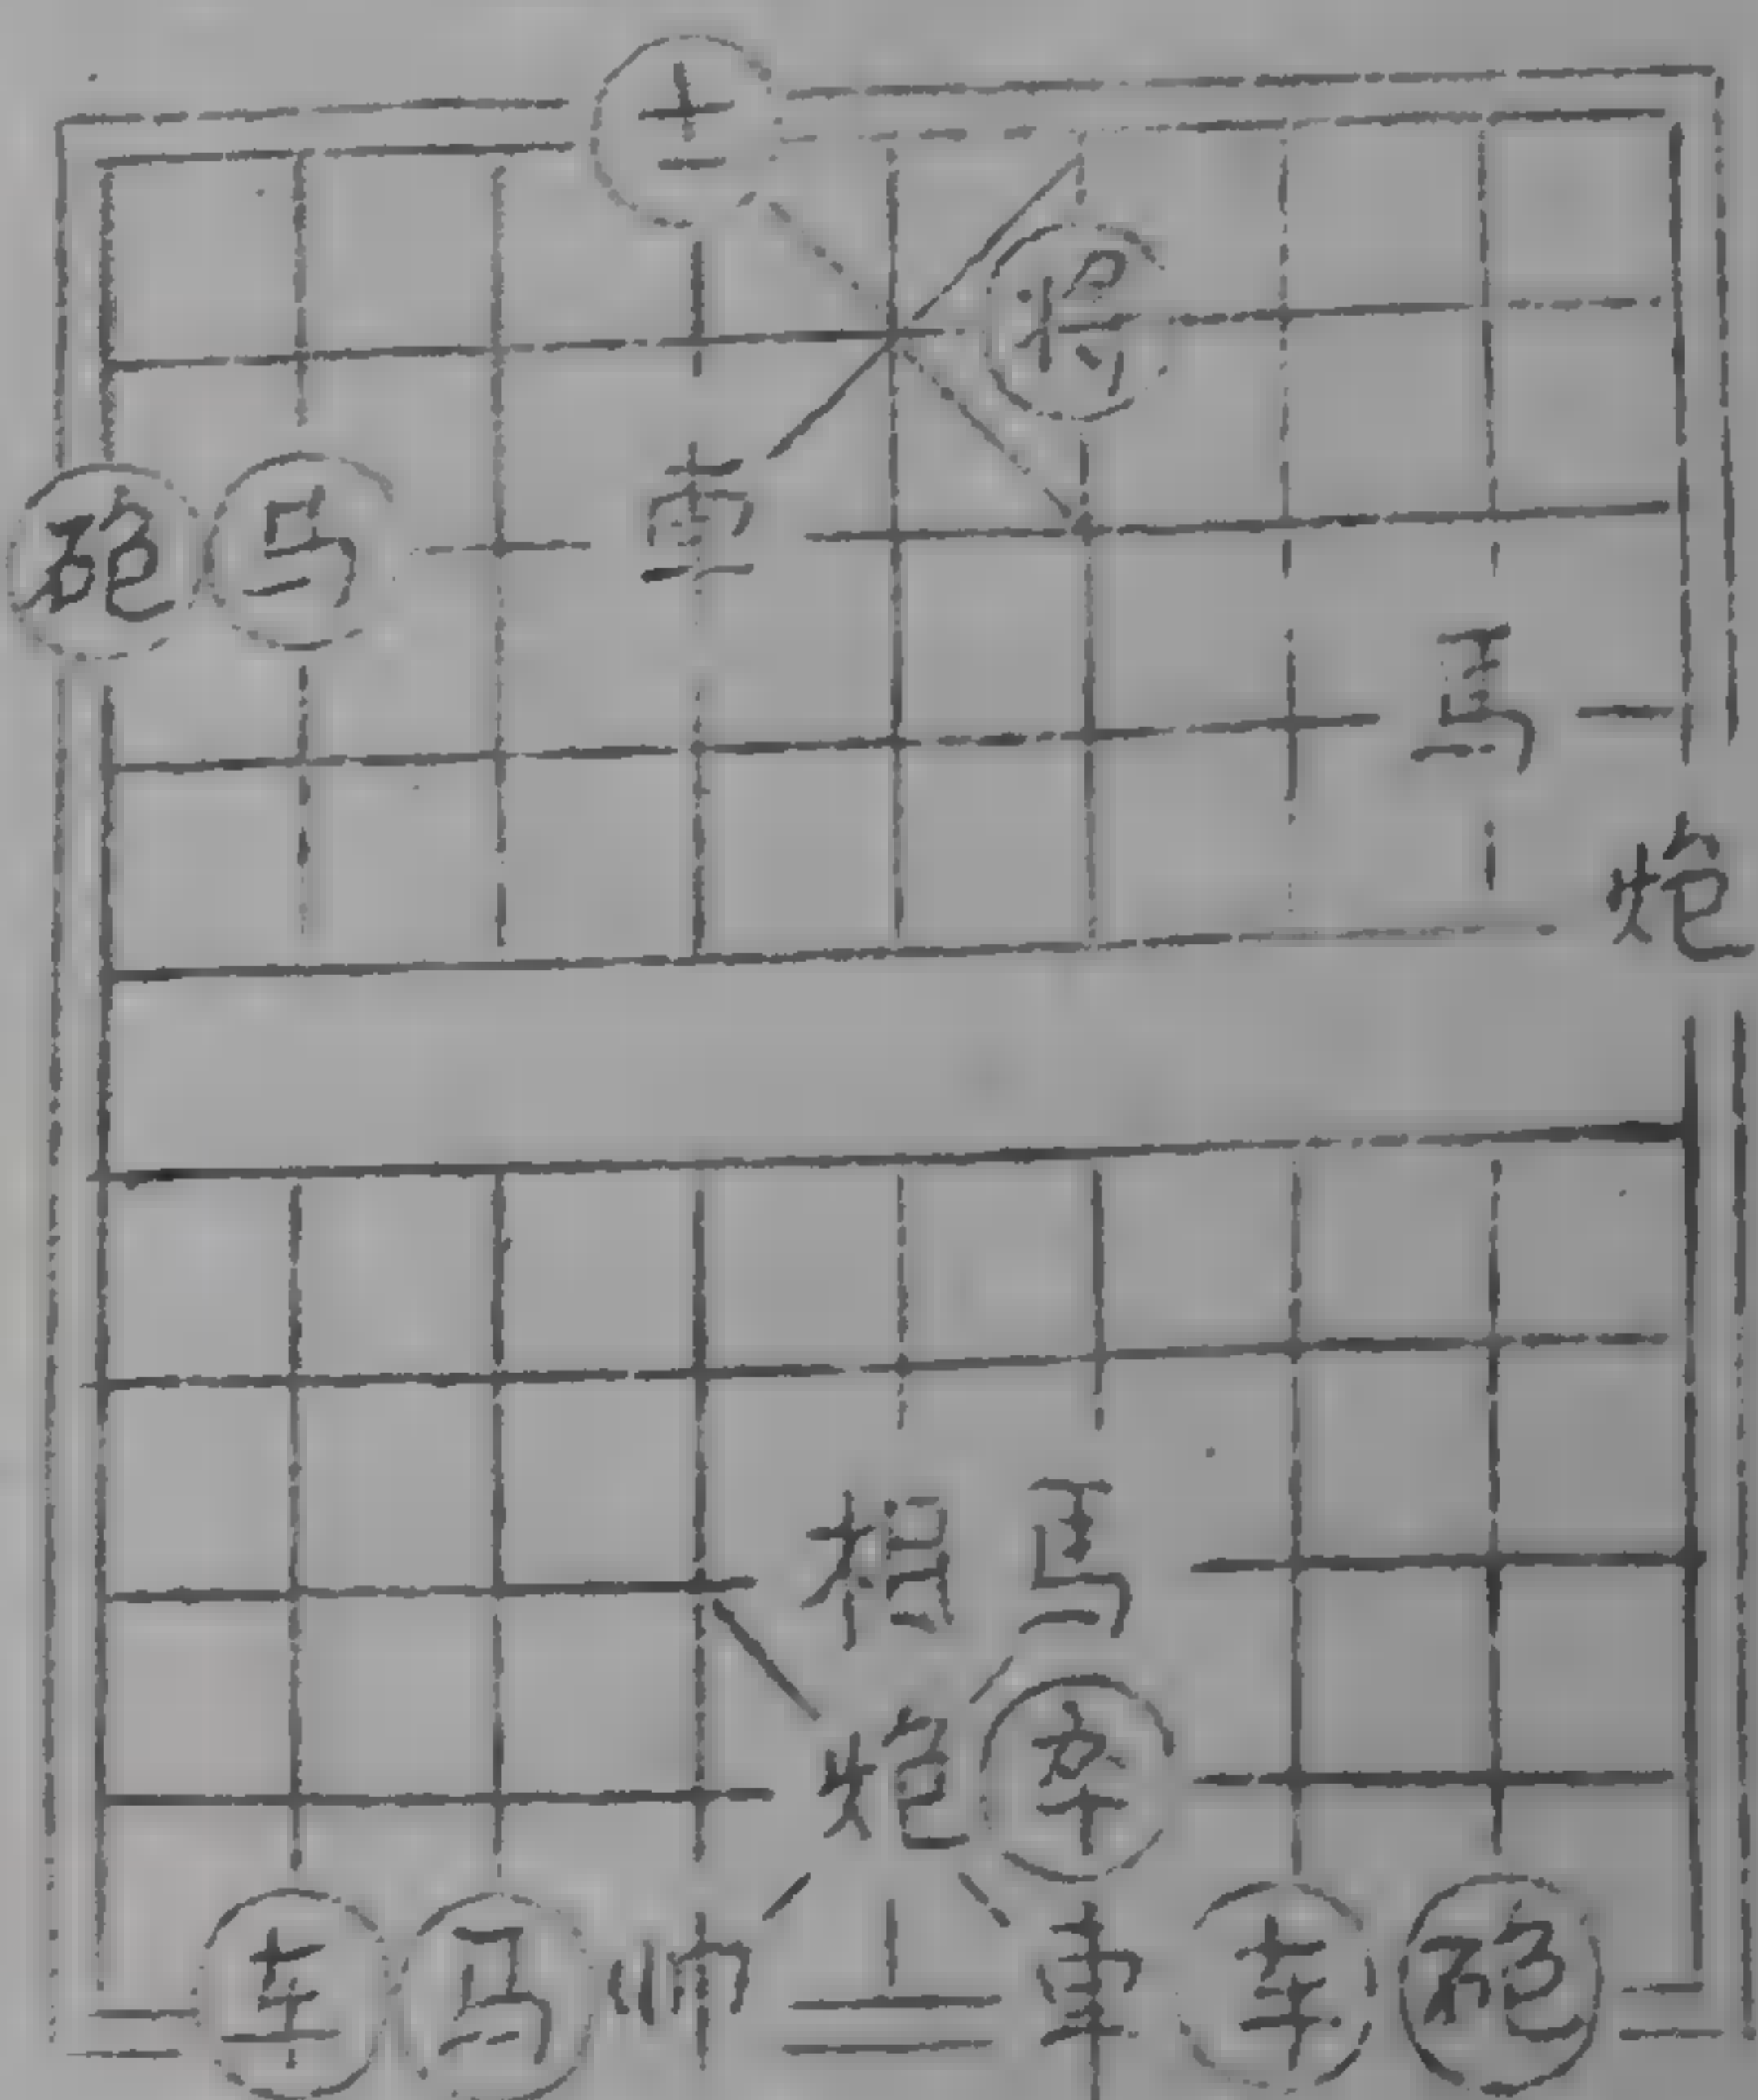 士
将
砲 马 車
馬
炮
相 馬
炮 卒
车 马 帅 車 车 砲